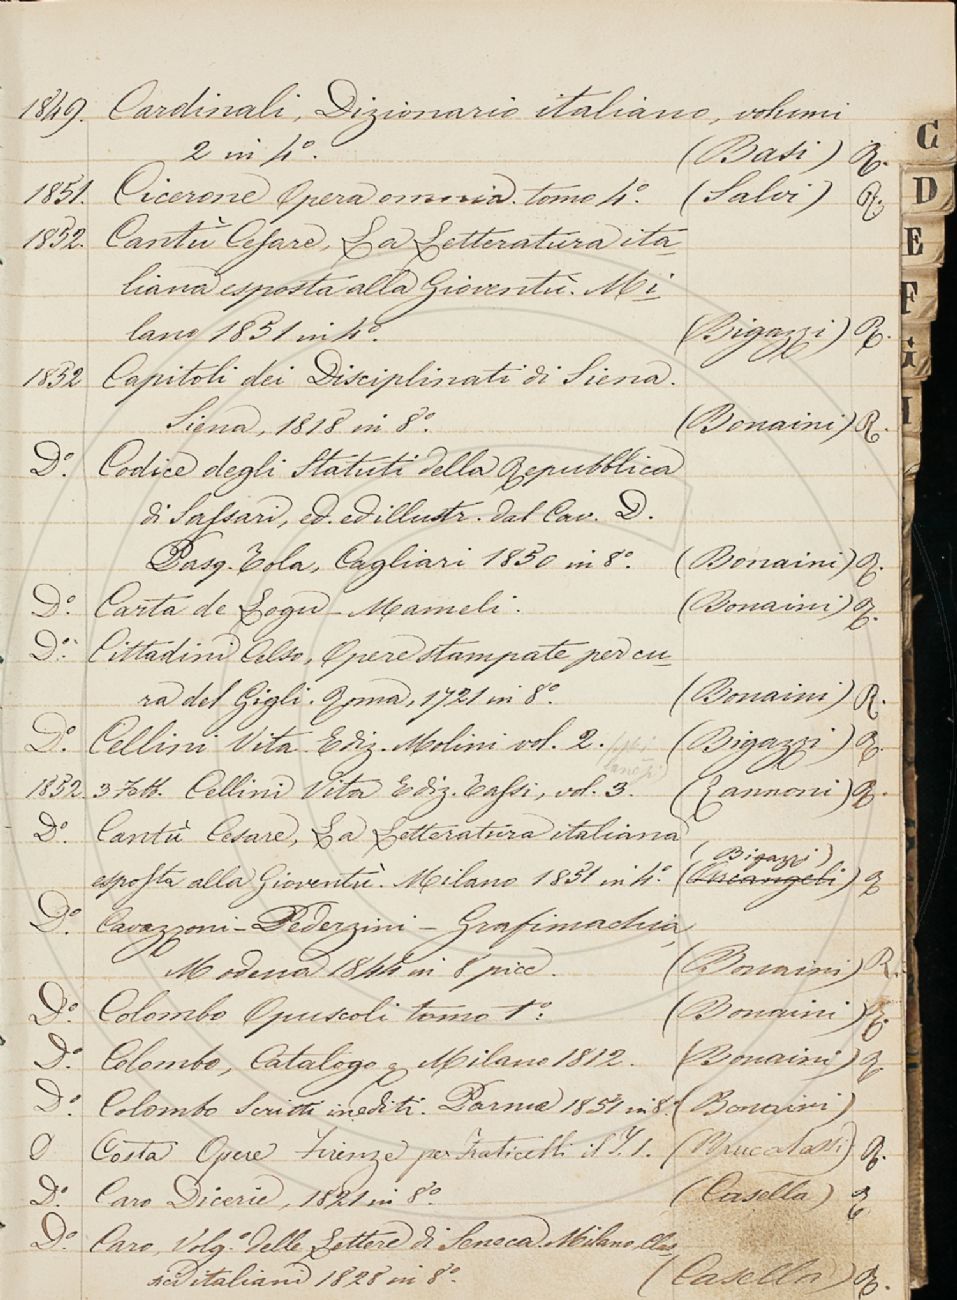 1849. Cardinali, Dizionario italiano, volumi
2 in 4º. (Basi) R.
1851. Cicerone Opera omnia. tomo 4º. (Salvi) R.
1852. Cantù Cesare, La Letteratura ita-
liana esposta alla Gioventù. Mi-
lano 1851 in 4º. (Bigazzi) R.
1852 Capitoli dei Disciplinati di Siena.
Siena, 1818 in 8º. (Bonaini) R.
Dº. Codice degli Statuti della Repubblica
di Sassari, ed. ed illustr. dal Cav. D.
Pasq. Tola, Cagliari 1850 in 8º. (Bonaini) R.
Dº. Carta de Logu - Mameli. (Bonaini) R.
Dº. Cittadini Celso, Opere stampate per cu-
ra del Gigli. Roma, 1721 in 8º. (Bonaini) R.
Dº. Cellini Vita Ediz. Molini vol. 2. (Bigazzi) R.
1852. Cellini Vita Ediz. Tassi, vol. 3. (Zannoni) R.
Dº. Cantù Cesare, La Letteratura italiana
(Bigazzi)
esposta alla Gioventù. Milano 1851 in 4º. (Arcangeli) R
Dº. Cavazzoni - Pederzini - Grafimachia,
Modena 1844 in 8 picc. (Bonaini) R.
Dº. Colombo Opuscoli tomo 1º. (Bonaini) R.
Dº. Colombo, Catalogo Milano 1812. (Bonaini) R
Dº. Colombo Scritti inediti. Parma 1851 in 8.º (Bonaini)
D Costa Opere Firenze per Fraticelli il T. 1. (Brucalassi) R.
Dº. Caro Dicerie, 1821 in 8º. (Casella) R
Dº. Caro, Volg.º delle Lettere di Seneca. Milano, Clas-
sici italiani 1828 in 8º. (Casella) R.
C
D
E
F
G
I